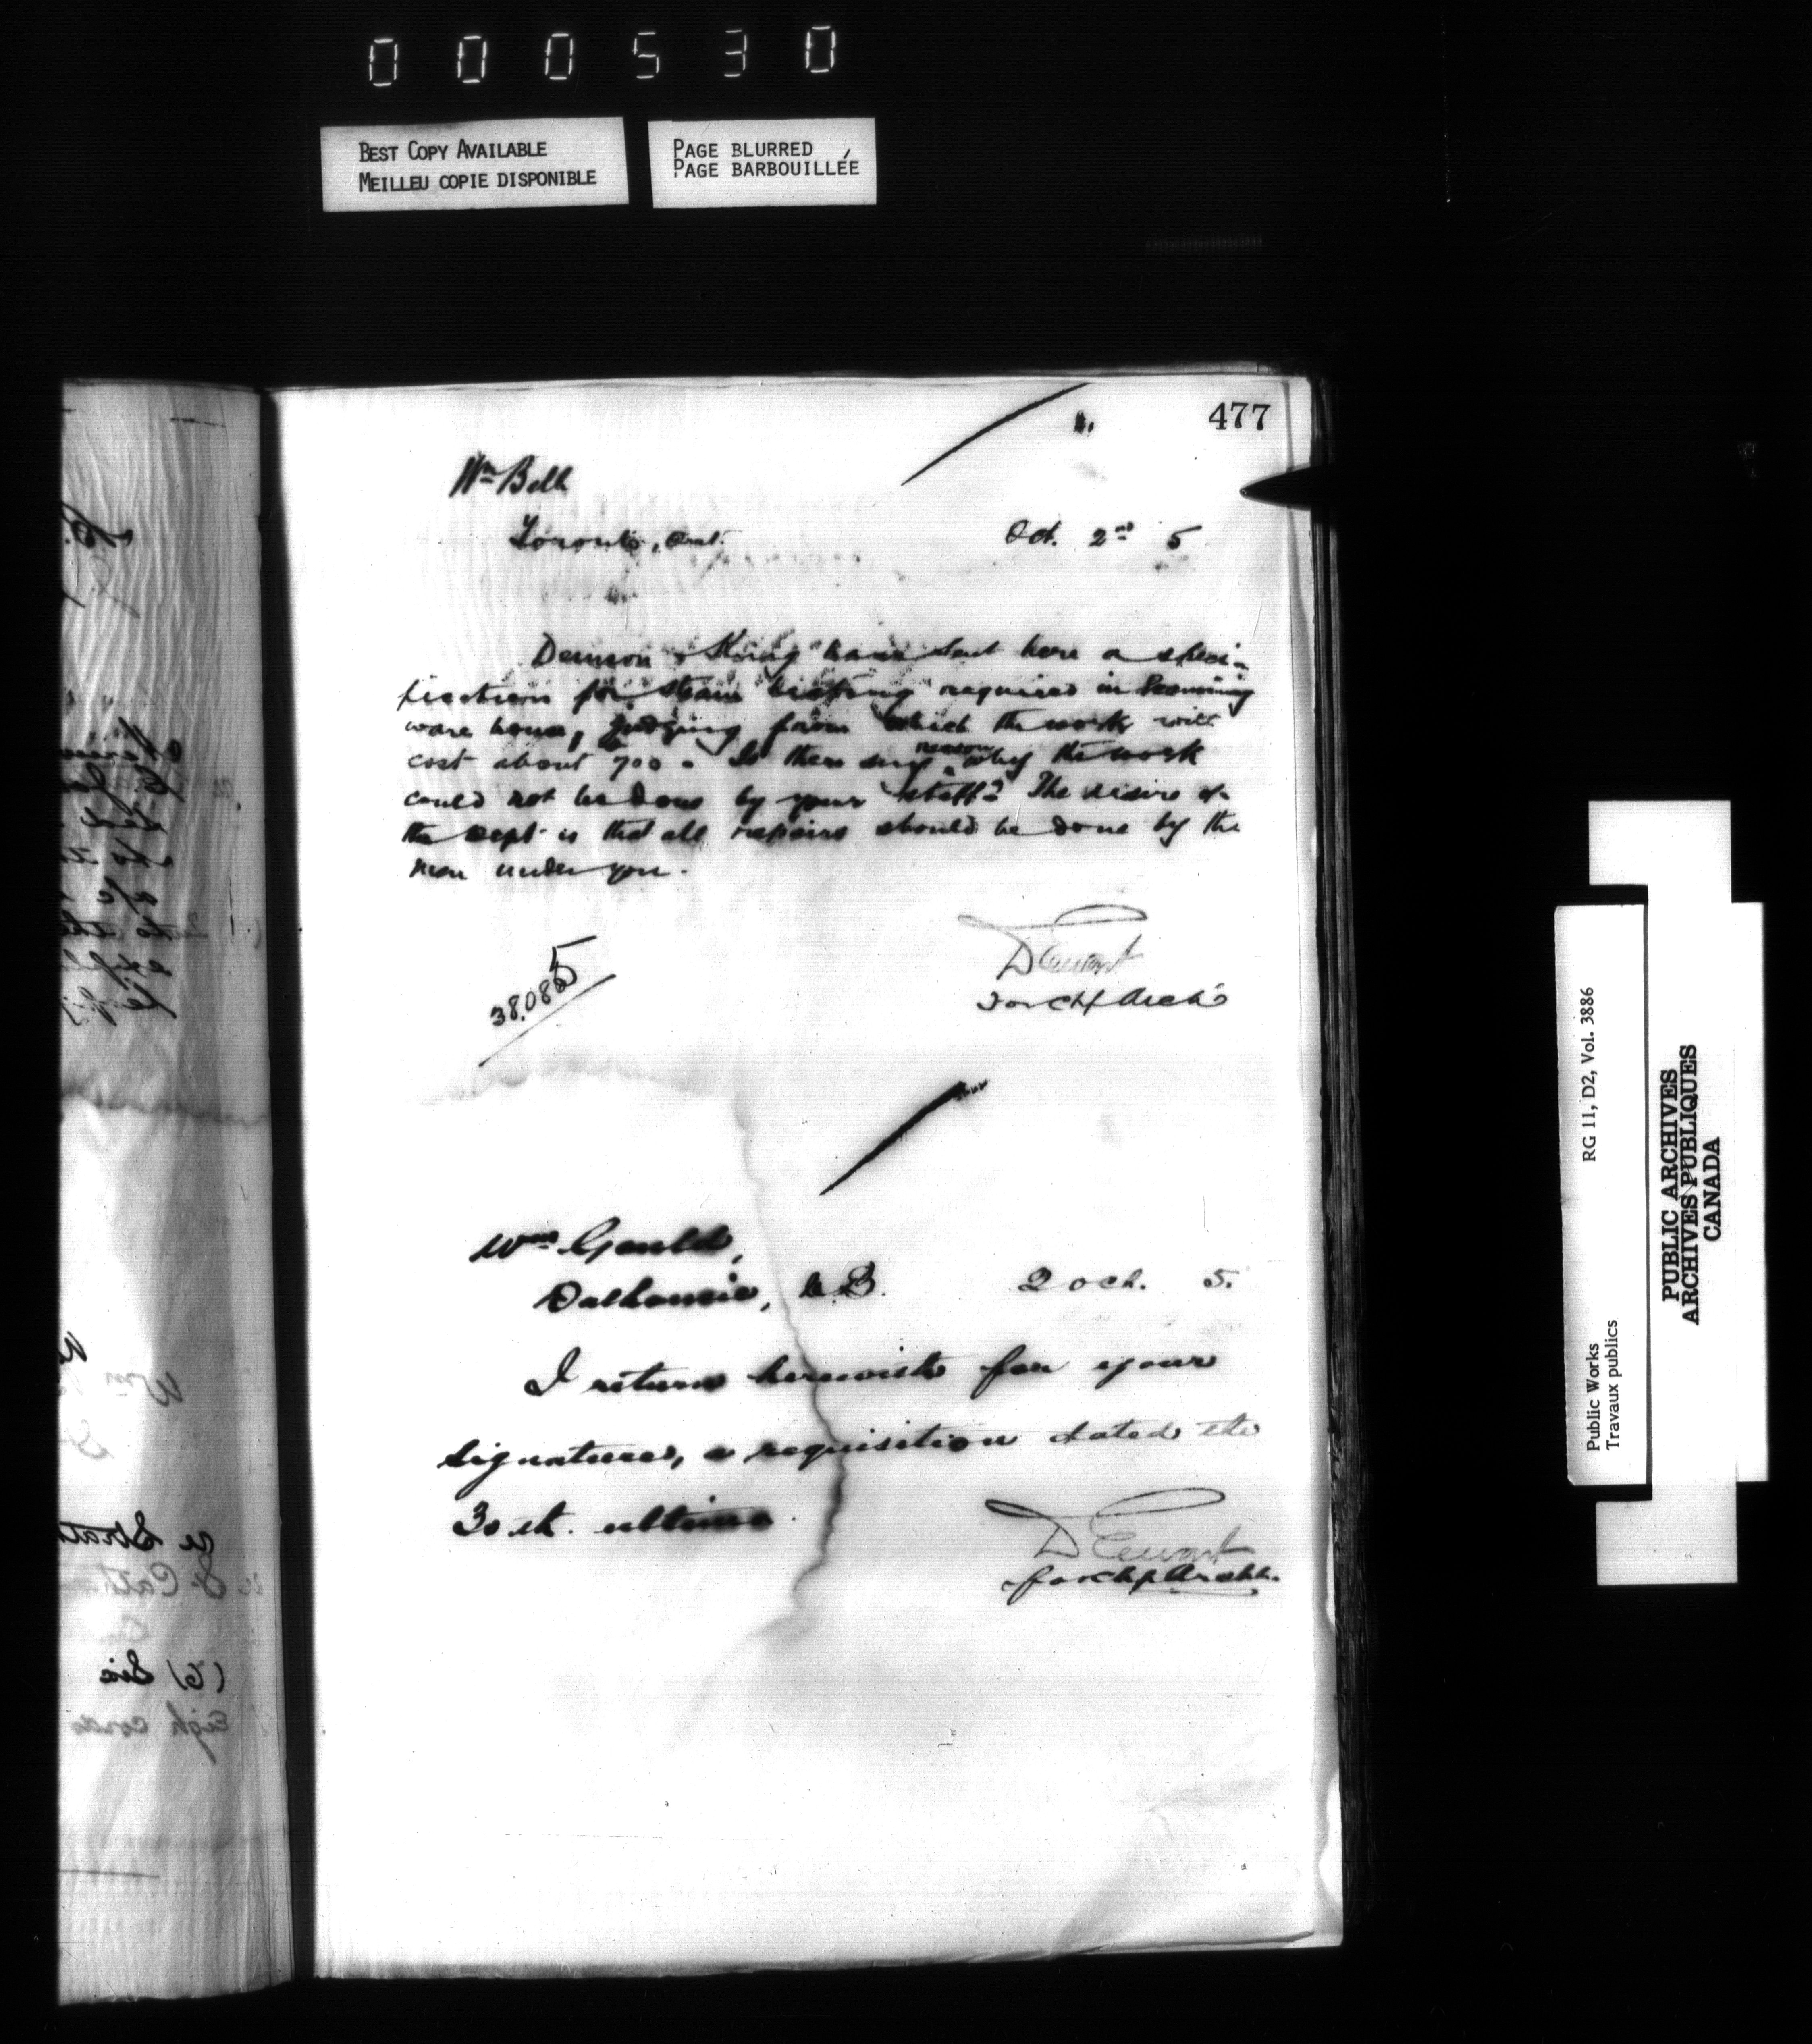 000530
BEST COPY AVAILABLE
MEILLEU COPIE DISPONIBLE
PAGE BLURRED
PAGE BARBOUILLÉE
477
Wm Bell
Toronto, Ont.
Oct. 2nd 5
Denison & King have sent here a speci-
fication for steam heating required in Examining
ware house, judging from which the work will
cost about 700. Is there any reason why the work
could not be done by your staff? The desire of
the Dept is that all repairs should be done by the
men under you.
D Ewart
for Chf Archt
38.085
Wm Gould,
Dalhousie, N.B.
2 Oct. 5.
I return herewith for your
signature, a requisition dated the
30th. ultimo.
D Ewart
for Chf Archt.
Public Works
Travaux publics
RG 11, D2, Vol. 3886
PUBLIC ARCHIVES
ARCHIVES PUBLIQUES
CANADA